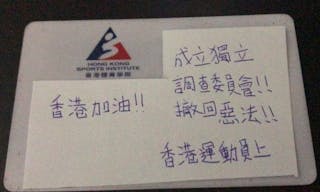 HONG KONG
SPORTS INSTITUTE
香港體育學院
成立獨立
調查委員會!!
撤回惡法!!
香港加油!!
香港運動員上